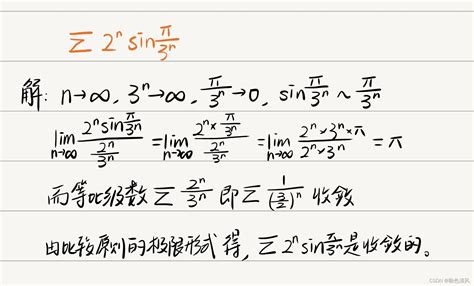 ∑ 2ⁿ sin π/3ⁿ
解: n→∞, 3ⁿ→∞, π/3ⁿ→0, sin π/3ⁿ ~ π/3ⁿ
lim n→∞ (2ⁿ sin π/3ⁿ)/(2ⁿ/3ⁿ) = lim n→∞ (2ⁿ × π/3ⁿ)/(2ⁿ/3ⁿ) = lim n→∞ (2ⁿ×3ⁿ×π)/(2ⁿ×3ⁿ) = π
而等比级数 ∑ 2ⁿ/3ⁿ 即 ∑ 1/(3/2)ⁿ 收敛
由比较原则的极限形式得, ∑ 2ⁿ sin π/3ⁿ 是收敛的。